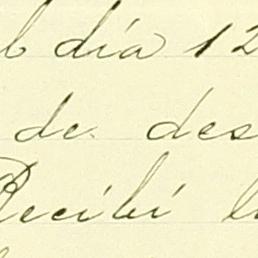 día 12
de des
Recibí